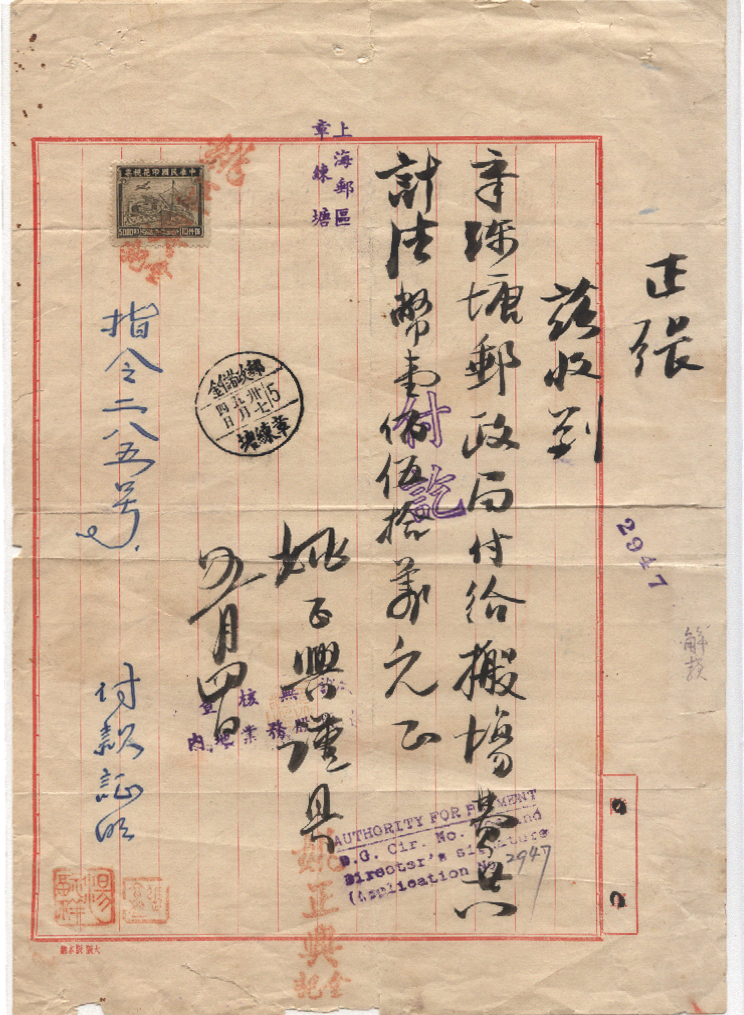 正張
茲收到
章练塘郵政局付給搬場費共
計法幣壹佰伍拾萬元正
姚正興謹具
五月四日
上海郵區
章練塘
付訖
2947
中華民國印花稅票
5000
郵政儲金
卅七年
五月
四日
5
章練塘
指令二八五号
付款証明
查核無
內地業務股
AUTHORITY FOR PAYMENT
D.G. Cir. No. and
Director's signature
(Application No. 2947
姚正興
金記